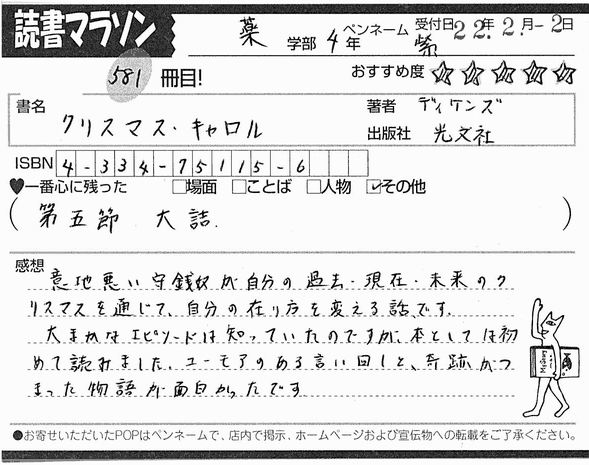 読書マラソン
薬 学部 4年 ペンネーム 紫 受付日 22年 2月-2日
581 冊目! おすすめ度 ☆☆☆☆☆
書名 クリスマス・キャロル
著者 ディケンズ
出版社 光文社
ISBN 4-334-75115-6
♥一番心に残った □場面 □ことば □人物 ☑その他
(第五節 大詰.)
感想
意地悪い守銭奴が自分の過去・現在・未来のク
リスマスを通じて、自分の在り方を変える話です.
大まかなエピソードは知っていたのですが、本としては初
めて読みました。ユーモアのある言い回しと、奇跡がつ
まった物語が面白かったです
●お寄せいただいたPOPはペンネームで、店内で掲示、ホームページおよび宣伝物への転載をご了承ください。